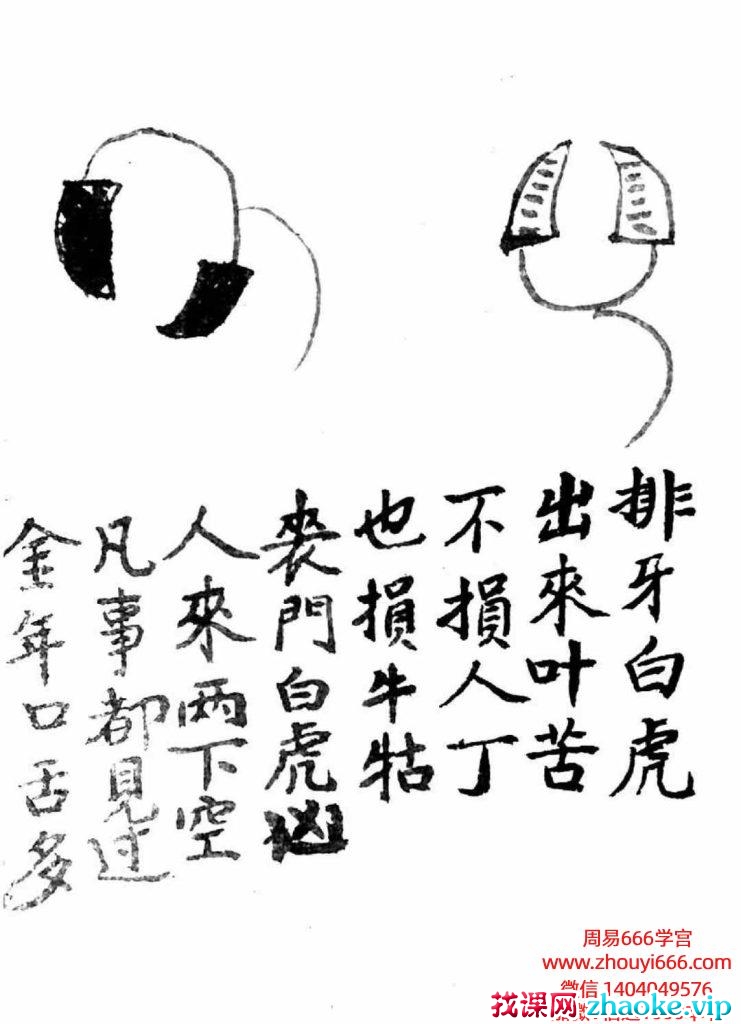 排牙白虎
出來叶苦
不損人丁
也損牛牯
喪門白虎凶
人來兩下空
凡事都見过
金年口舌多
周易666学宫
www.zhouyi666.com
微信 1404049576
找课网 zhaoke.vip